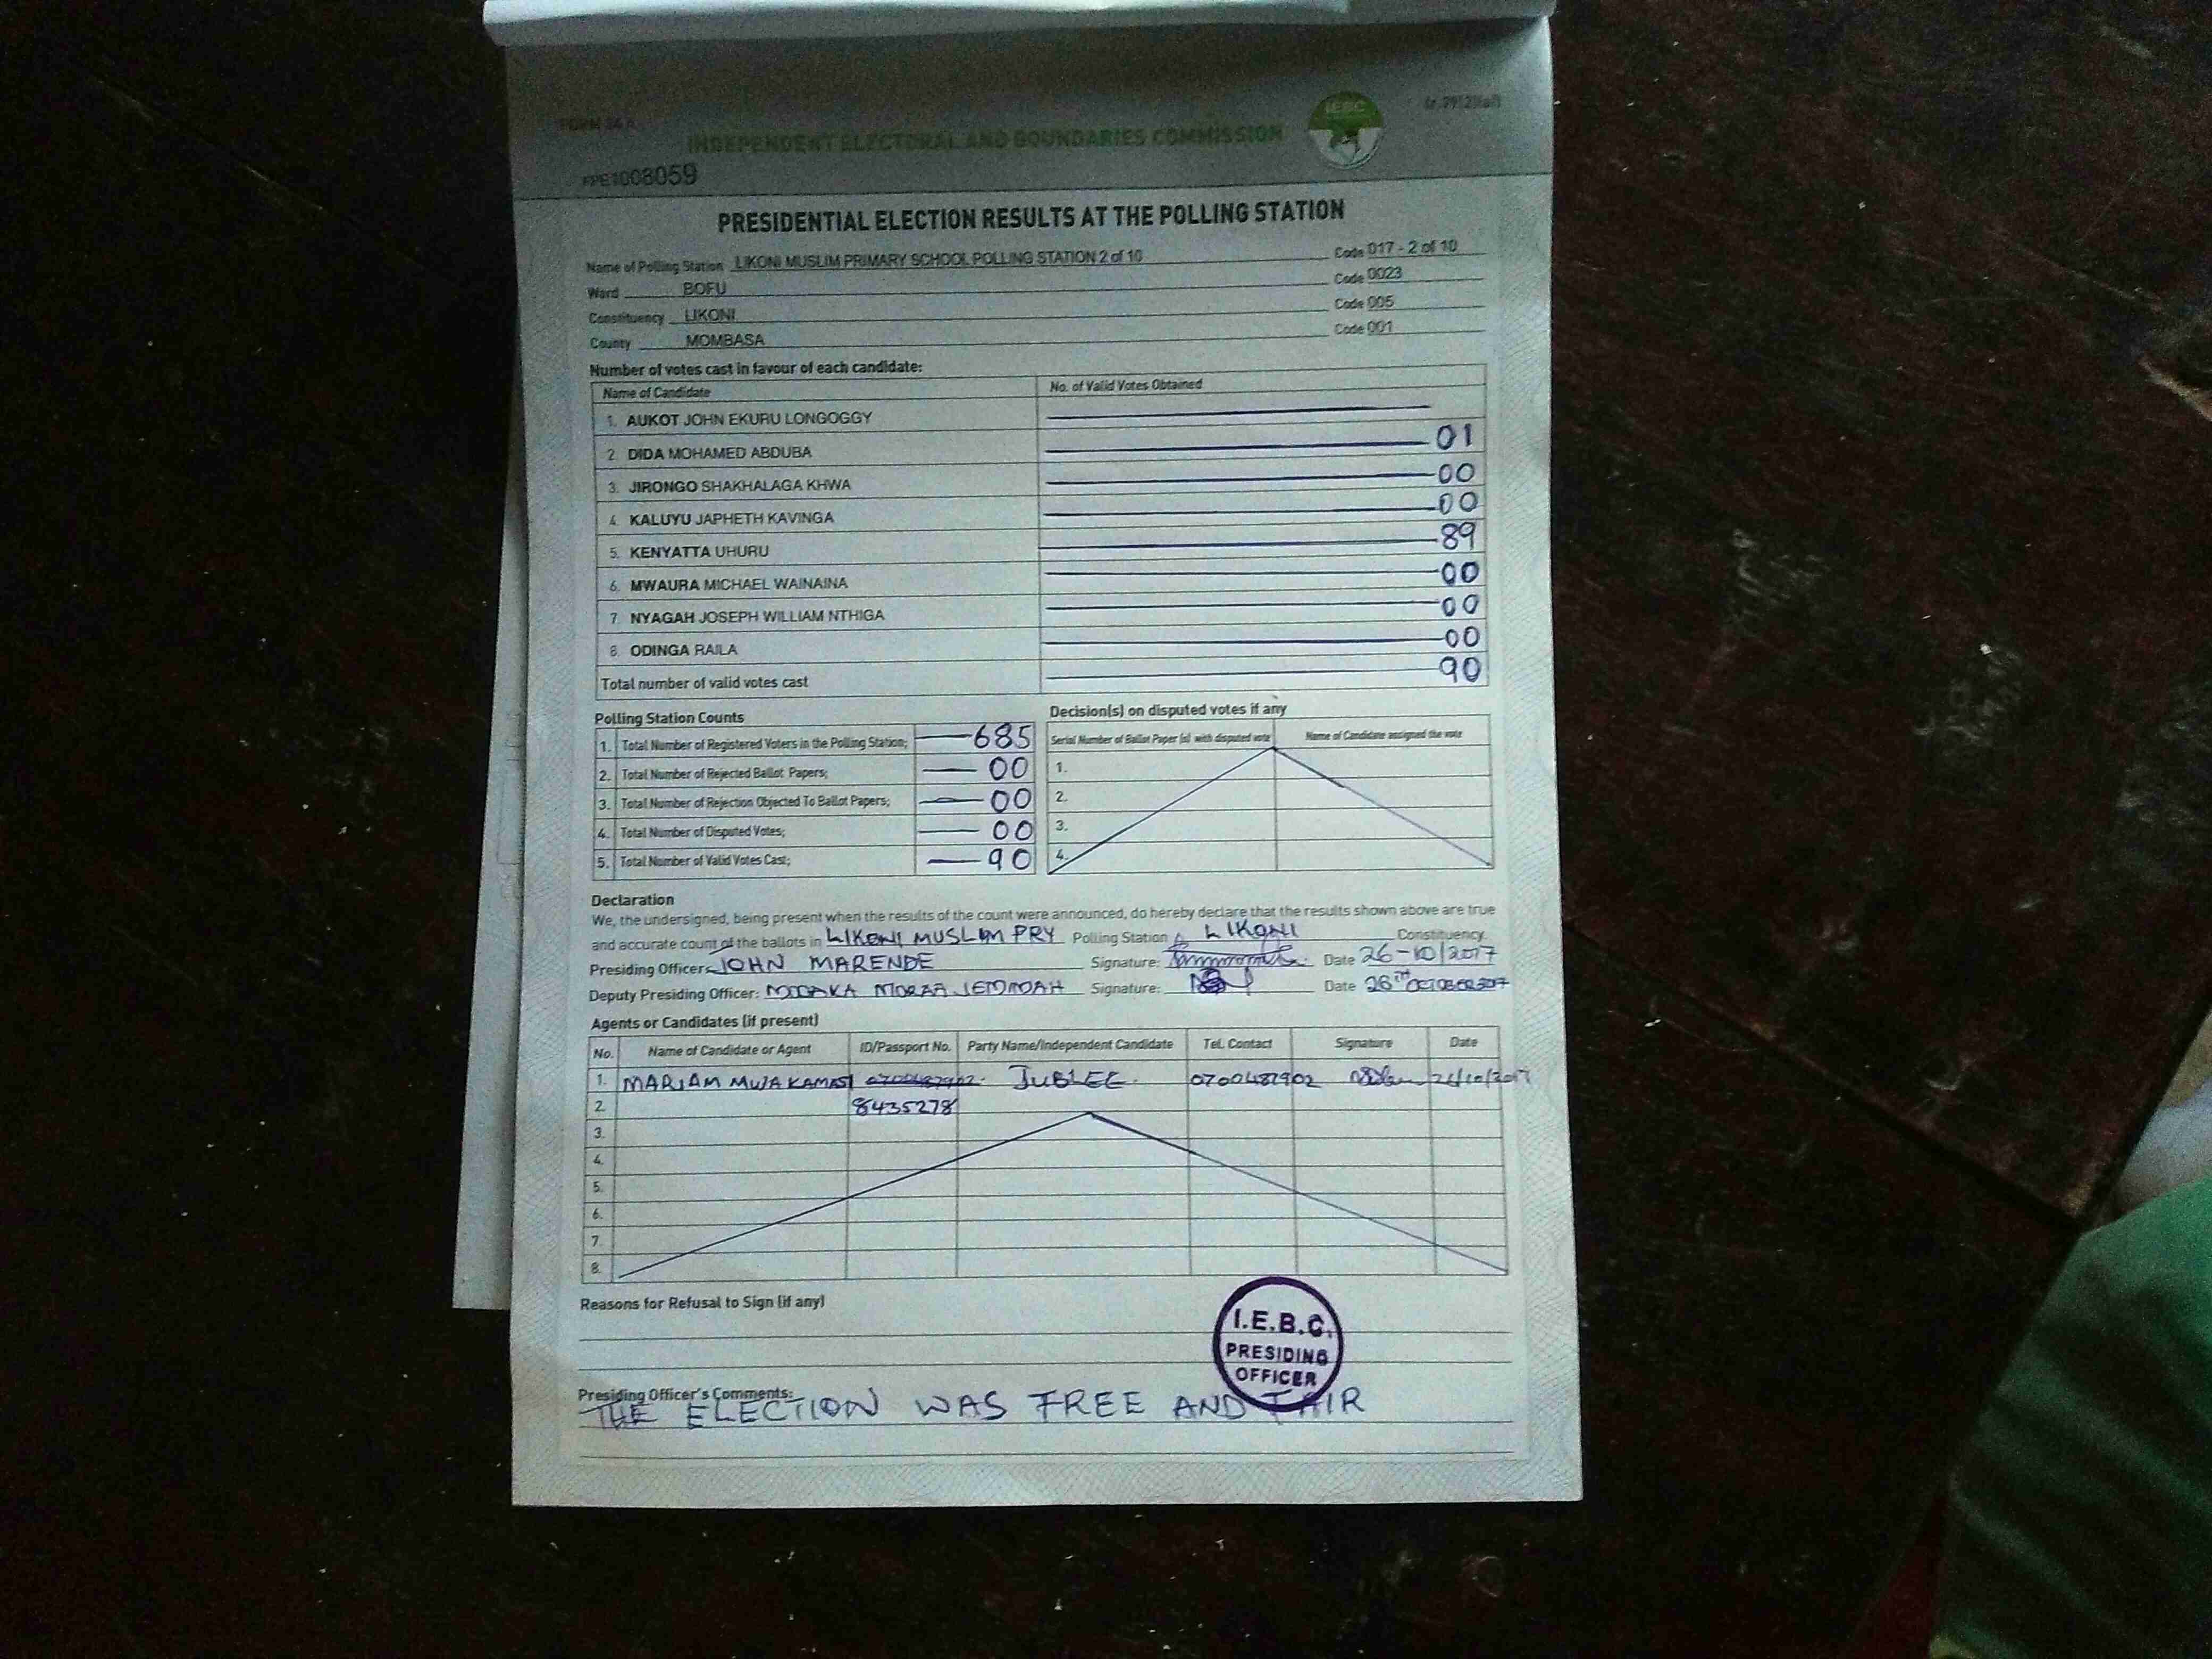 FORM 34 A
INDEPENDENT ELECTORAL AND BOUNDARIES COMMISSION
IEBC
FPE1008059
PRESIDENTIAL ELECTION RESULTS AT THE POLLING STATION
Name of Polling Station LIKONI MUSLIM PRIMARY SCHOOL POLLING STATION 2 of 10 Code 017 - 2 of 10
Ward BOFU Code 0023
Constituency LIKONI Code 005
County MOMBASA Code 001
Number of votes cast in favour of each candidate:
Name of Candidate No. of Valid Votes Obtained
1. AUKOT JOHN EKURU LONGOGGY
2. DIDA MOHAMED ABDUBA 01
3. JIRONGO SHAKHALAGA KHWA 00
4. KALUYU JAPHETH KAVINGA 00
5. KENYATTA UHURU 89
6. MWAURA MICHAEL WAINAINA 00
7. NYAGAH JOSEPH WILLIAM NTHIGA 00
8. ODINGA RAILA 00
Total number of valid votes cast 90
Polling Station Counts
1. Total Number of Registered Voters in the Polling Station; 685
2. Total Number of Rejected Ballot Papers; 00
3. Total Number of Rejection Objected To Ballot Papers; 00
4. Total Number of Disputed Votes; 00
5. Total Number of Valid Votes Cast; 90
Decision(s) on disputed votes if any
Serial Number of Ballot Paper (s) with disputed vote Name of Candidate assigned the vote
1.
2.
3.
4.
Declaration
We, the undersigned, being present when the results of the count were announced, do hereby declare that the results shown above are true
and accurate count of the ballots in LIKONI MUSLIM PRY Polling Station LIKONI Constituency.
Presiding Officer: JOHN MARENDE Signature: Date 26-10/2017
Deputy Presiding Officer: MORAA JEMMAH Signature: Date 26TH OCTOBER 2017
Agents or Candidates (if present)
No. Name of Candidate or Agent ID/Passport No. Party Name/Independent Candidate Tel. Contact Signature Date
1. MARIAM MWAKAMASI 0700487902 JUBLEE. 0700487902 26/10/2017
2. 8435278
3.
4.
5.
6.
7.
8.
Reasons for Refusal to Sign (if any)
I.E.B.C.
PRESIDING
OFFICER
Presiding Officer's Comments:
THE ELECTION WAS FREE AND FAIR